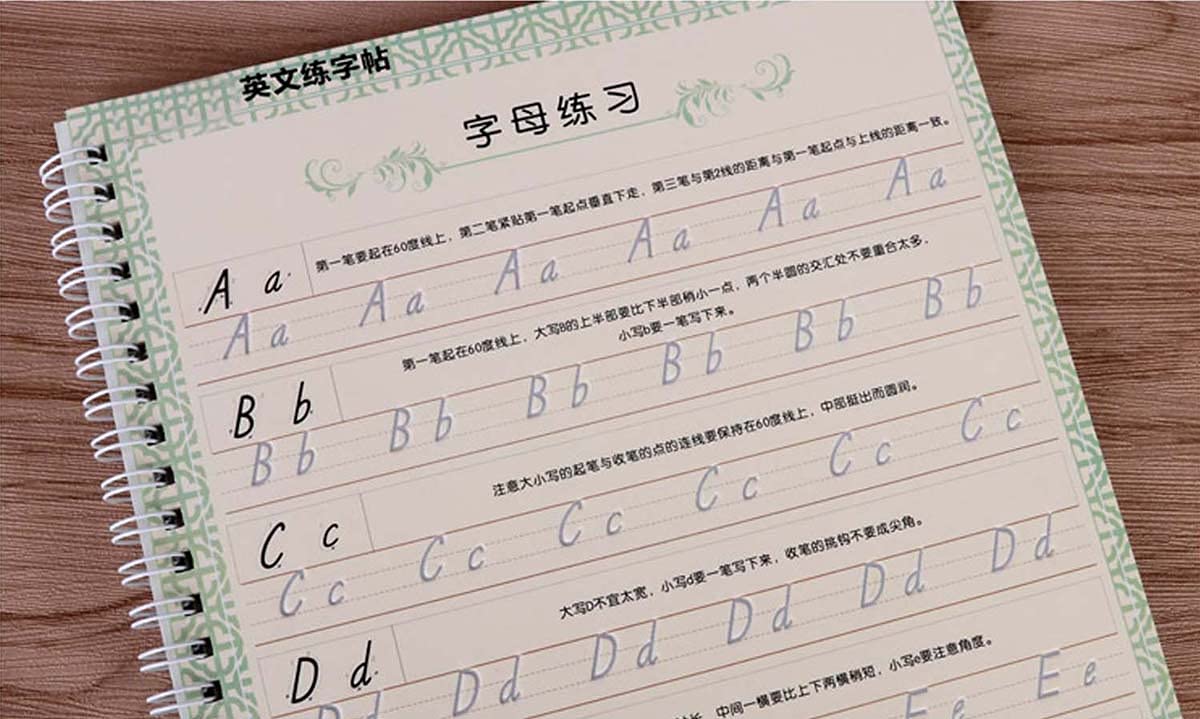 英文练字帖
字母练习
第一笔要起在60度线上，第二笔紧贴第一笔起点垂直下走，第三笔与第2线的距离与第一笔起点与上线的距离一致。
A a
A a A a A a A a A a A a
第一笔起在60度线上，大写B的上半部要比下半部稍小一点，两个半圆的交汇处不要重合太多，
小写b要一笔写下来。
B b
B b B b B b B b B b B b
注意大小写的起笔与收笔的点的连线要保持在60度线上，中部挺出而圆润。
C c
C c C c C c C c C c C c
大写D不宜太宽，小写d要一笔写下来，收笔的挑钩不要成尖角。
D d
D d D d D d D d D d D d
中间一横要比上下两横稍短，小写e要注意角度。
E e E e